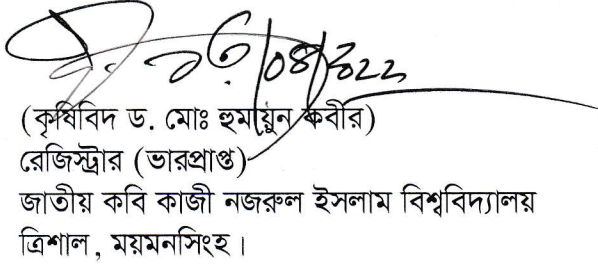 /08/2022
(কৃষিবিদ ড. মোঃ হুমায়ুন কবীর)
রেজিস্ট্রার (ভারপ্রাপ্ত)
জাতীয় কবি কাজী নজরুল ইসলাম বিশ্ববিদ্যালয়
ত্রিশাল, ময়মনসিংহ।